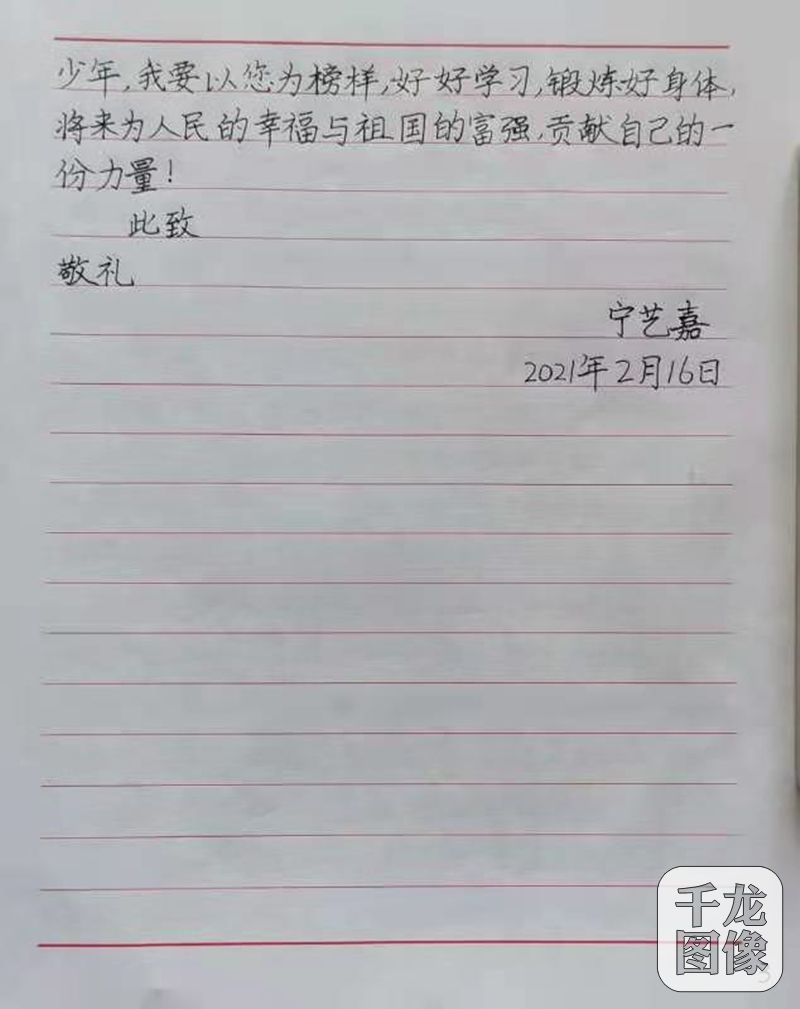 少年,我要以您为榜样,好好学习,锻炼好身体,
将来为人民的幸福与祖国的富强,贡献自己的一
份力量!
此致
敬礼
宁艺嘉
2021年2月16日
千龙
图像